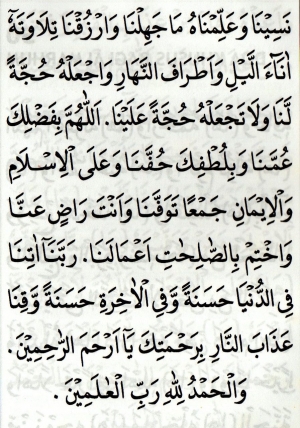 نَسِيْنَا وَعَلِّمْنَاهُ مَا جَهِلْنَا وَارْزُقْنَا تِلَاوَتَهٗ
اٰنَآءَ الَّيْلِ وَاَطْرَافَ النَّهَارِ وَاجْعَلْهُ حُجَّةً
لَّنَا وَلَا تَجْعَلْهُ حُجَّةً عَلَيْنَا. اَللّٰهُمَّ بِفَضْلِكَ
عُمَّنَا وَبِلُطْفِكَ حُفَّنَا وَعَلَى الْاِسْلَامِ
وَالْاِيْمَانِ جَمْعًا تَوَفَّنَا وَاَنْتَ رَاضٍ عَنَّا
وَاخْتِمْ بِالصّٰلِحٰتِ اَعْمَالَنَا. رَبَّنَآ اٰتِنَا
فِى الدُّنْيَا حَسَنَةً وَّفِى الْاٰخِرَةِ حَسَنَةً وَّقِنَا
عَذَابَ النَّارِ بِرَحْمَتِكَ يَآ اَرْحَمَ الرّٰحِمِيْنَ.
وَالْحَمْدُ لِلّٰهِ رَبِّ الْعٰلَمِيْنَ.